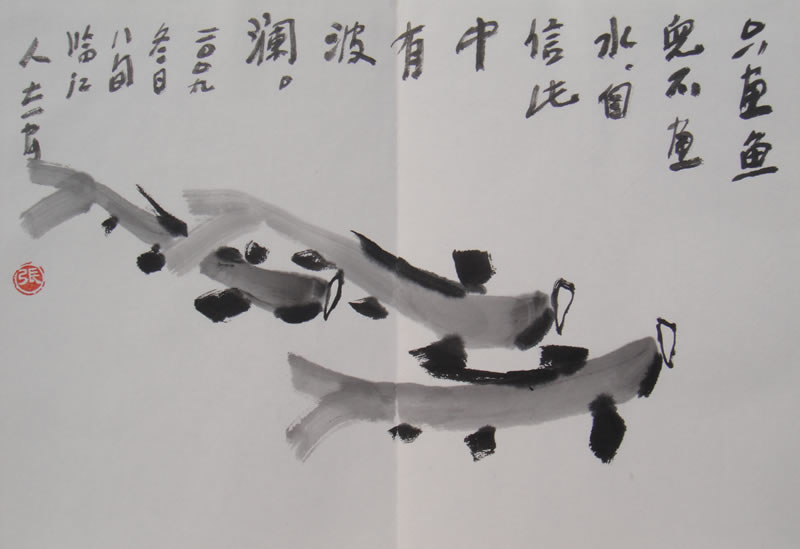 只画鱼
兒不画
水、自
信此
中
有
波
澜。
二〇〇九
冬日
八旬
临江
人
張